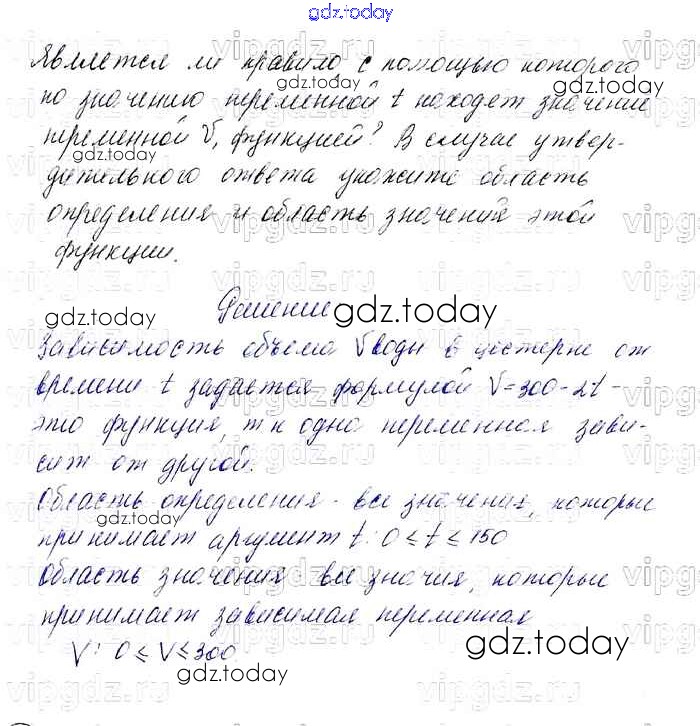 gdz.today
Является ли правило с помощью которого
по значению переменной t находят значение
переменной V, функцией? В случае утвер-
дительного ответа укажите область
определения и область значений этой
функции.
Решение
Зависимость объема V воды в цистерне от
времени t задается формулой V=300-2t -
это функция, т к одна переменная зави-
сит от другой.
Область определения - все значения, которые
принимает аргумент t: 0 ≤ t ≤ 150
Область значения все значия, которые
принимает зависимая переменная
V: 0 ≤ V ≤ 300